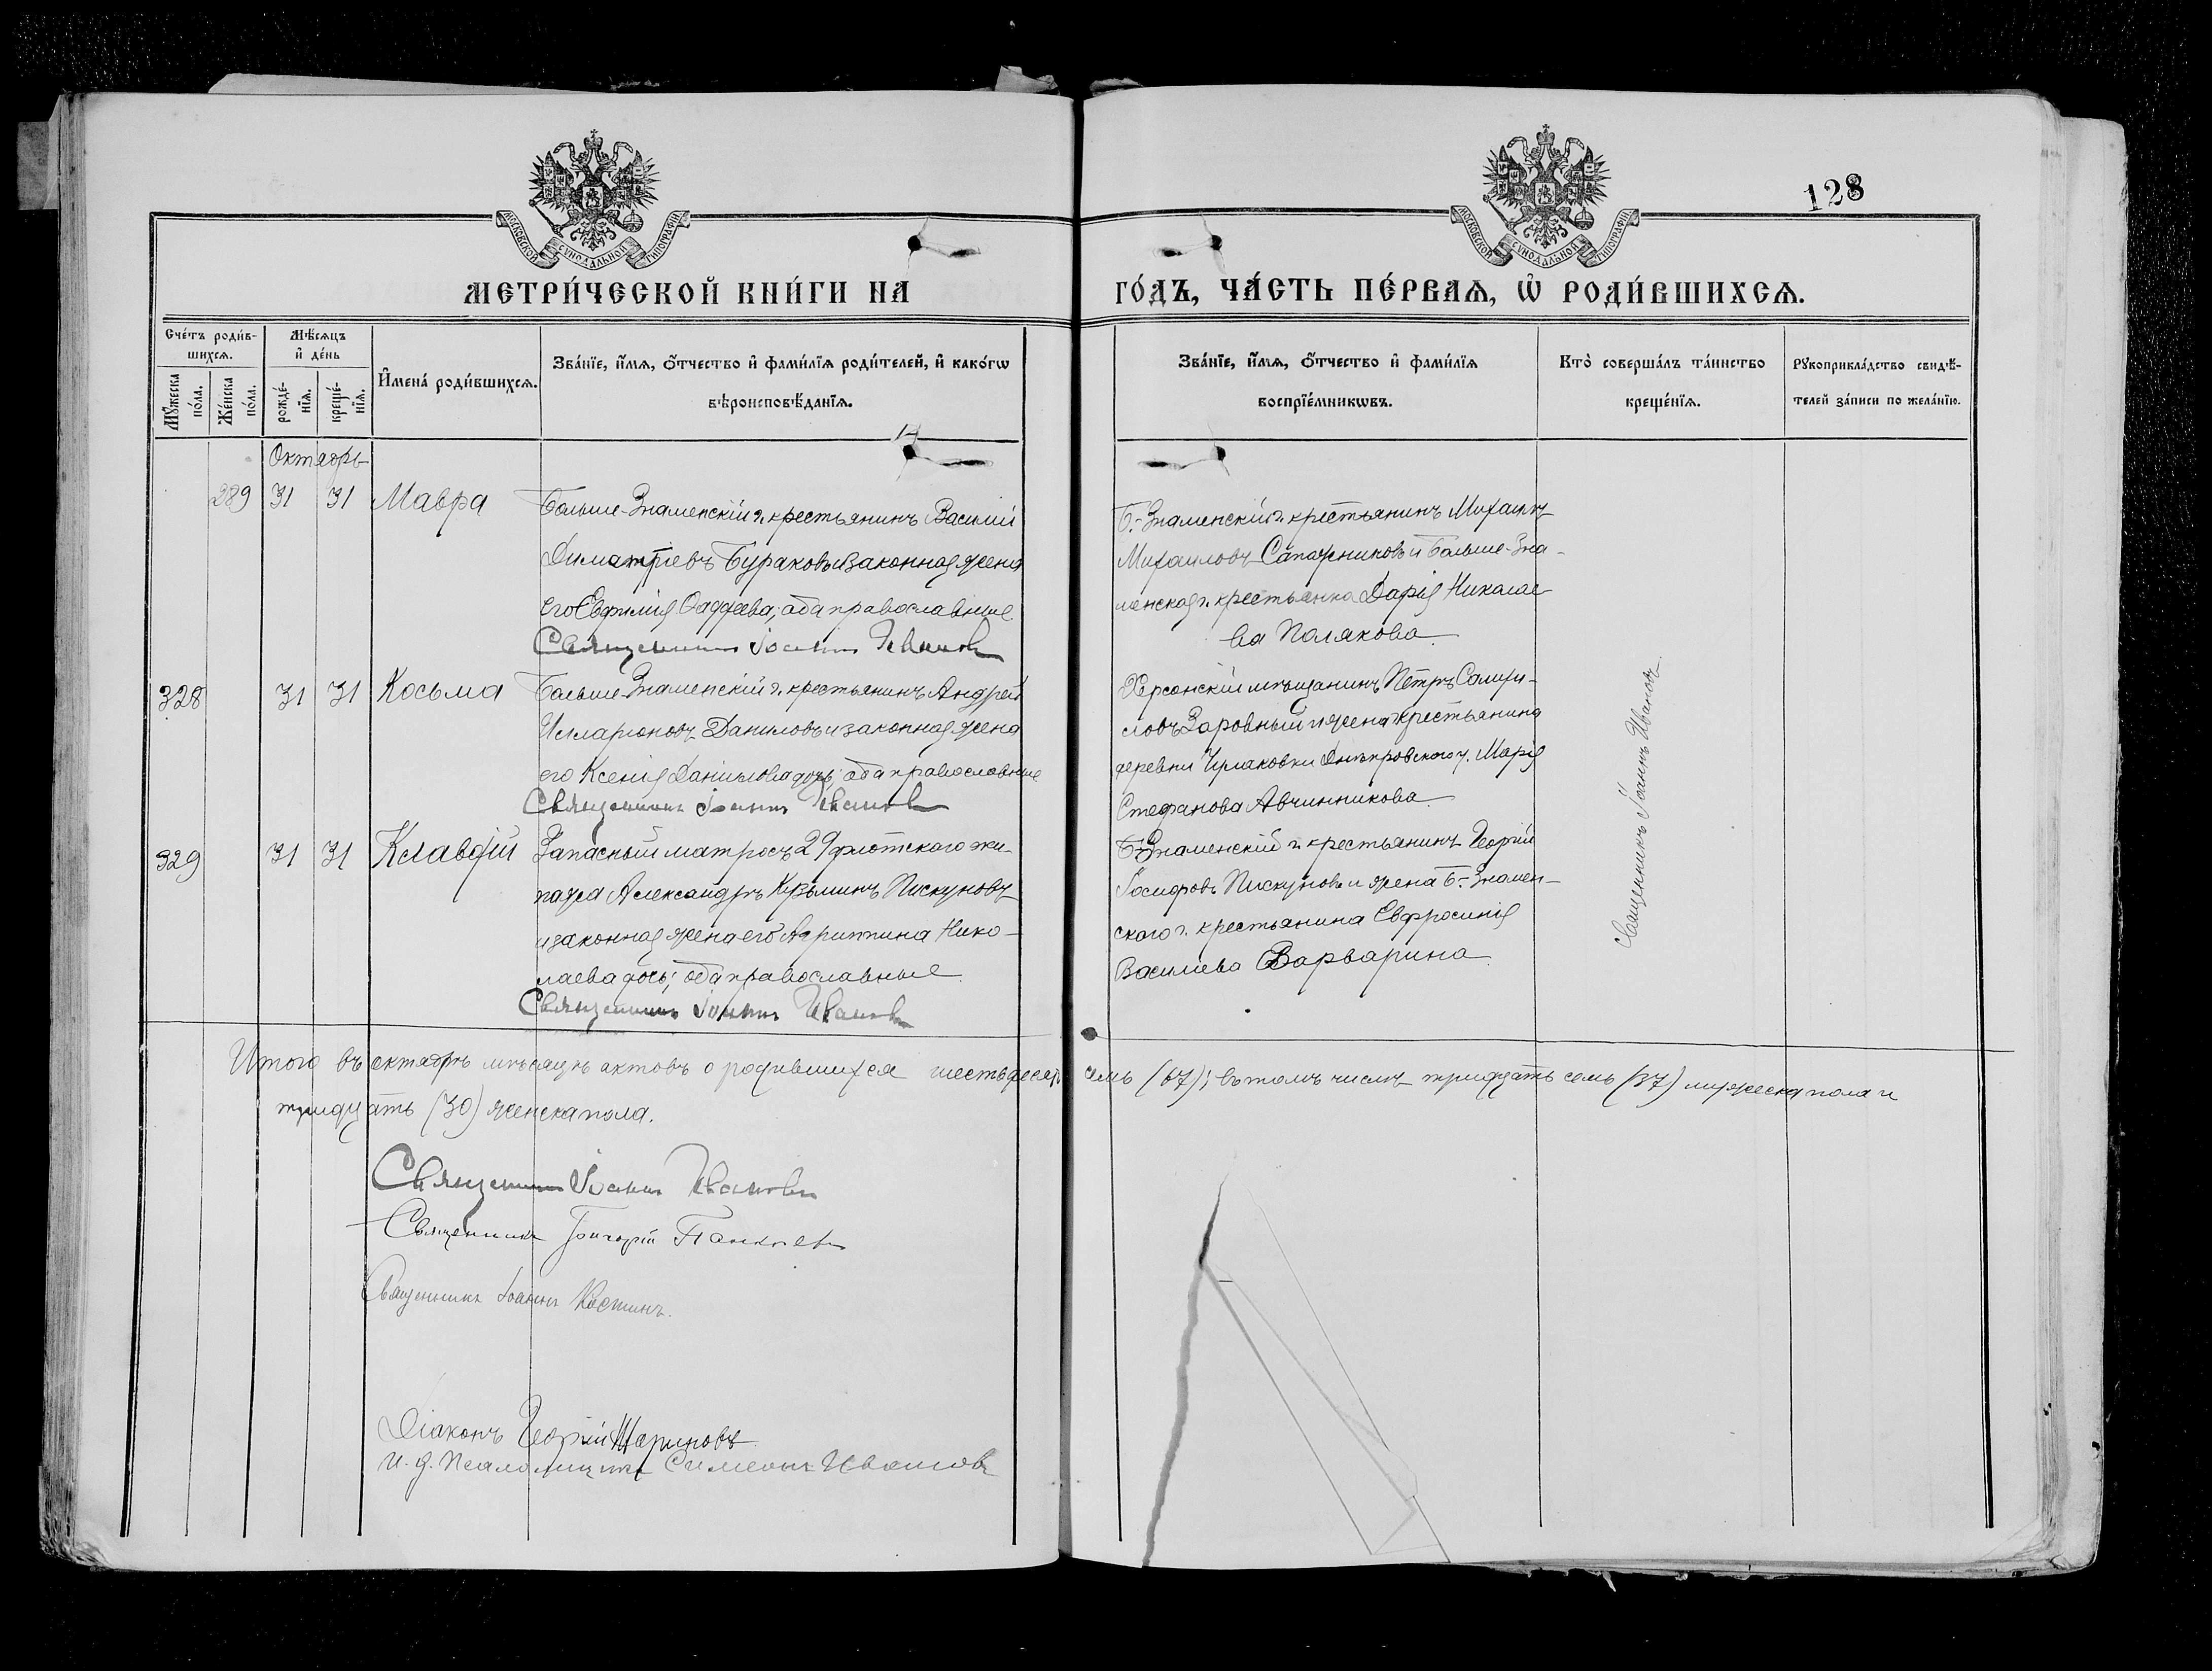 128
МОСКОВСКОЙ СѴНОДАЛЬНОЙ ТИПОГРАФІИ
МОСКОВСКОЙ СѴНОДАЛЬНОЙ ТИПОГРАФІИ
МЕТРИ́ЧЕСКОЙ КНИ́ГИ НА
ГО́ДЪ, ЧА́СТЬ ПЕ́РВАѦ, Ѡ҆ РОДИ́ВШИХСѦ.
Сче́тъ роди́в-
шихсѧ.
Мꙋ́жеска по́ла.
Же́нска по́ла.
Мѣ́сѧцъ
и҆ де́нь
рожде́-
нїѧ.
креще́-
нїѧ.
И҆мена̀ роди́вшихсѧ.
Зва́нїе, и҆́мѧ, ѻ҆́тчество и҆ фами́лїѧ роди́телей, и҆ како́гѡ
вѣроисповѣ́данїѧ.
Зва́нїе, и҆́мѧ, ѻ҆́тчество и҆ фами́лїѧ
воспрїе́мникѡвъ.
Кто̀ соверша́лъ та́инство
креще́нїѧ.
Рꙋкоприкла́дство свидѣ́-
телей за́писи по жела́нїю.
14
Октябрь
289 31 31 Мавра
Больше-Знаменскій г. крестьянинъ Василій
Димитріевъ Бураковъ и законная жена
его Евфимія Фаддеева; оба православные
Священникъ Іоаннъ Ивановъ
Б.-Знаменскій г. крестьянинъ Михаилъ
Михаиловъ Сапожниковъ и Больше-Зна-
менская г. крестьянка Дарія Николае-
ва Полякова
328 31 31 Косьма
Больше-Знаменскій г. крестьянинъ Андрей
Илларіоновъ Даниловъ и законная жена
его Ксенія Даніилова дочь; оба православные
Священникъ Іоаннъ Ивановъ
Херсонскій мѣщанинъ Петръ Самуи-
ловъ Заровный и жена крестьянина
деревни Чулаковки Днѣпровского у. Марія
Стефанова Авчинникова
329 31 31 Клавдій
Запасный матросъ 29 флотского эки-
пажа Александръ Козьминъ Пискуновъ
и законная жена его Агриппина Нико-
лаева дочь; оба православные
Священникъ Іоаннъ Ивановъ
Б-Знаменскій г. крестьянинъ Георгій
Іосифовъ Пискуновъ и жена Б.-Знамен-
ского г. крестьянина Евфросинія
Василіева Варварина
Священникъ Іоаннъ Ивановъ
Итого въ октябрѣ мѣсяцѣ актовъ о родившихся шестьдесятъ семь (67); въ томъ числѣ тридцать семь (37) мужеска пола и
тридцать (30) женска пола.
Священникъ Іоаннъ Ивановъ
Священникъ Григорій
Священникъ Іоаннъ Костинъ.
Діаконъ Георгій
И. д. Псаломщика Симеонъ Ивановъ